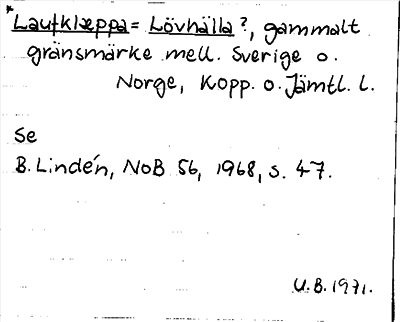 *Laufklæppa = Lövhälla?, gammalt
gränsmärke mell. Sverige o.
Norge, Kopp. o. Jämtl. l.
Se
B. Lindén, NoB 56, 1968, s. 47.
U.B. 1971.